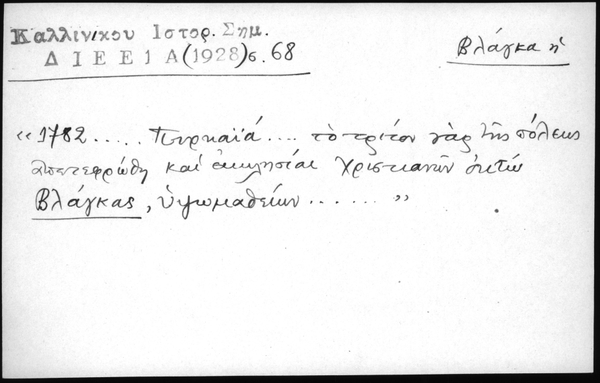 Καλλινίκου Ιστορ. Σημ.
Δ Ι Ε Ε 1 Α (1928) σ. 68
Βλάγκα ἡ
«1782 ..... Πυρκαϊά .... τὸ τρίτον γὰρ τῆς πόλεως
ἀπετεφρώθη καὶ ἐκκλησίαι Χριστιανῶν ὀκτώ
Βλάγκας, ὑψωμαθείων ...... »